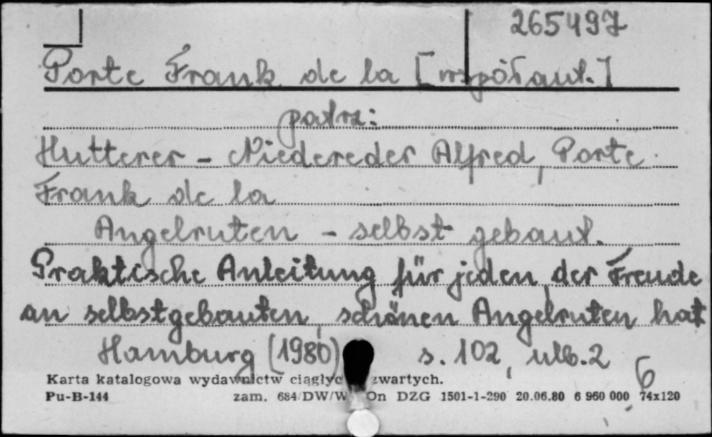 265497
Porte Frank de la [współaut.]
patrz:
Hutterer - Niedereder Alfred, Porte
Frank de la
Angelruten - selbst gebaut.
Praktische Anleitung für jeden, der Freude
an selbstgebauten, schönen Angelruten hat
Hamburg (1980) s. 102, ulb. 2
6
Karta katalogowa wydawnictw ciągłyc zwartych.
Pu-B-144 zam. 684/DW/W On DZG 1501-1-290 20.06.80 6 960 000 74x120